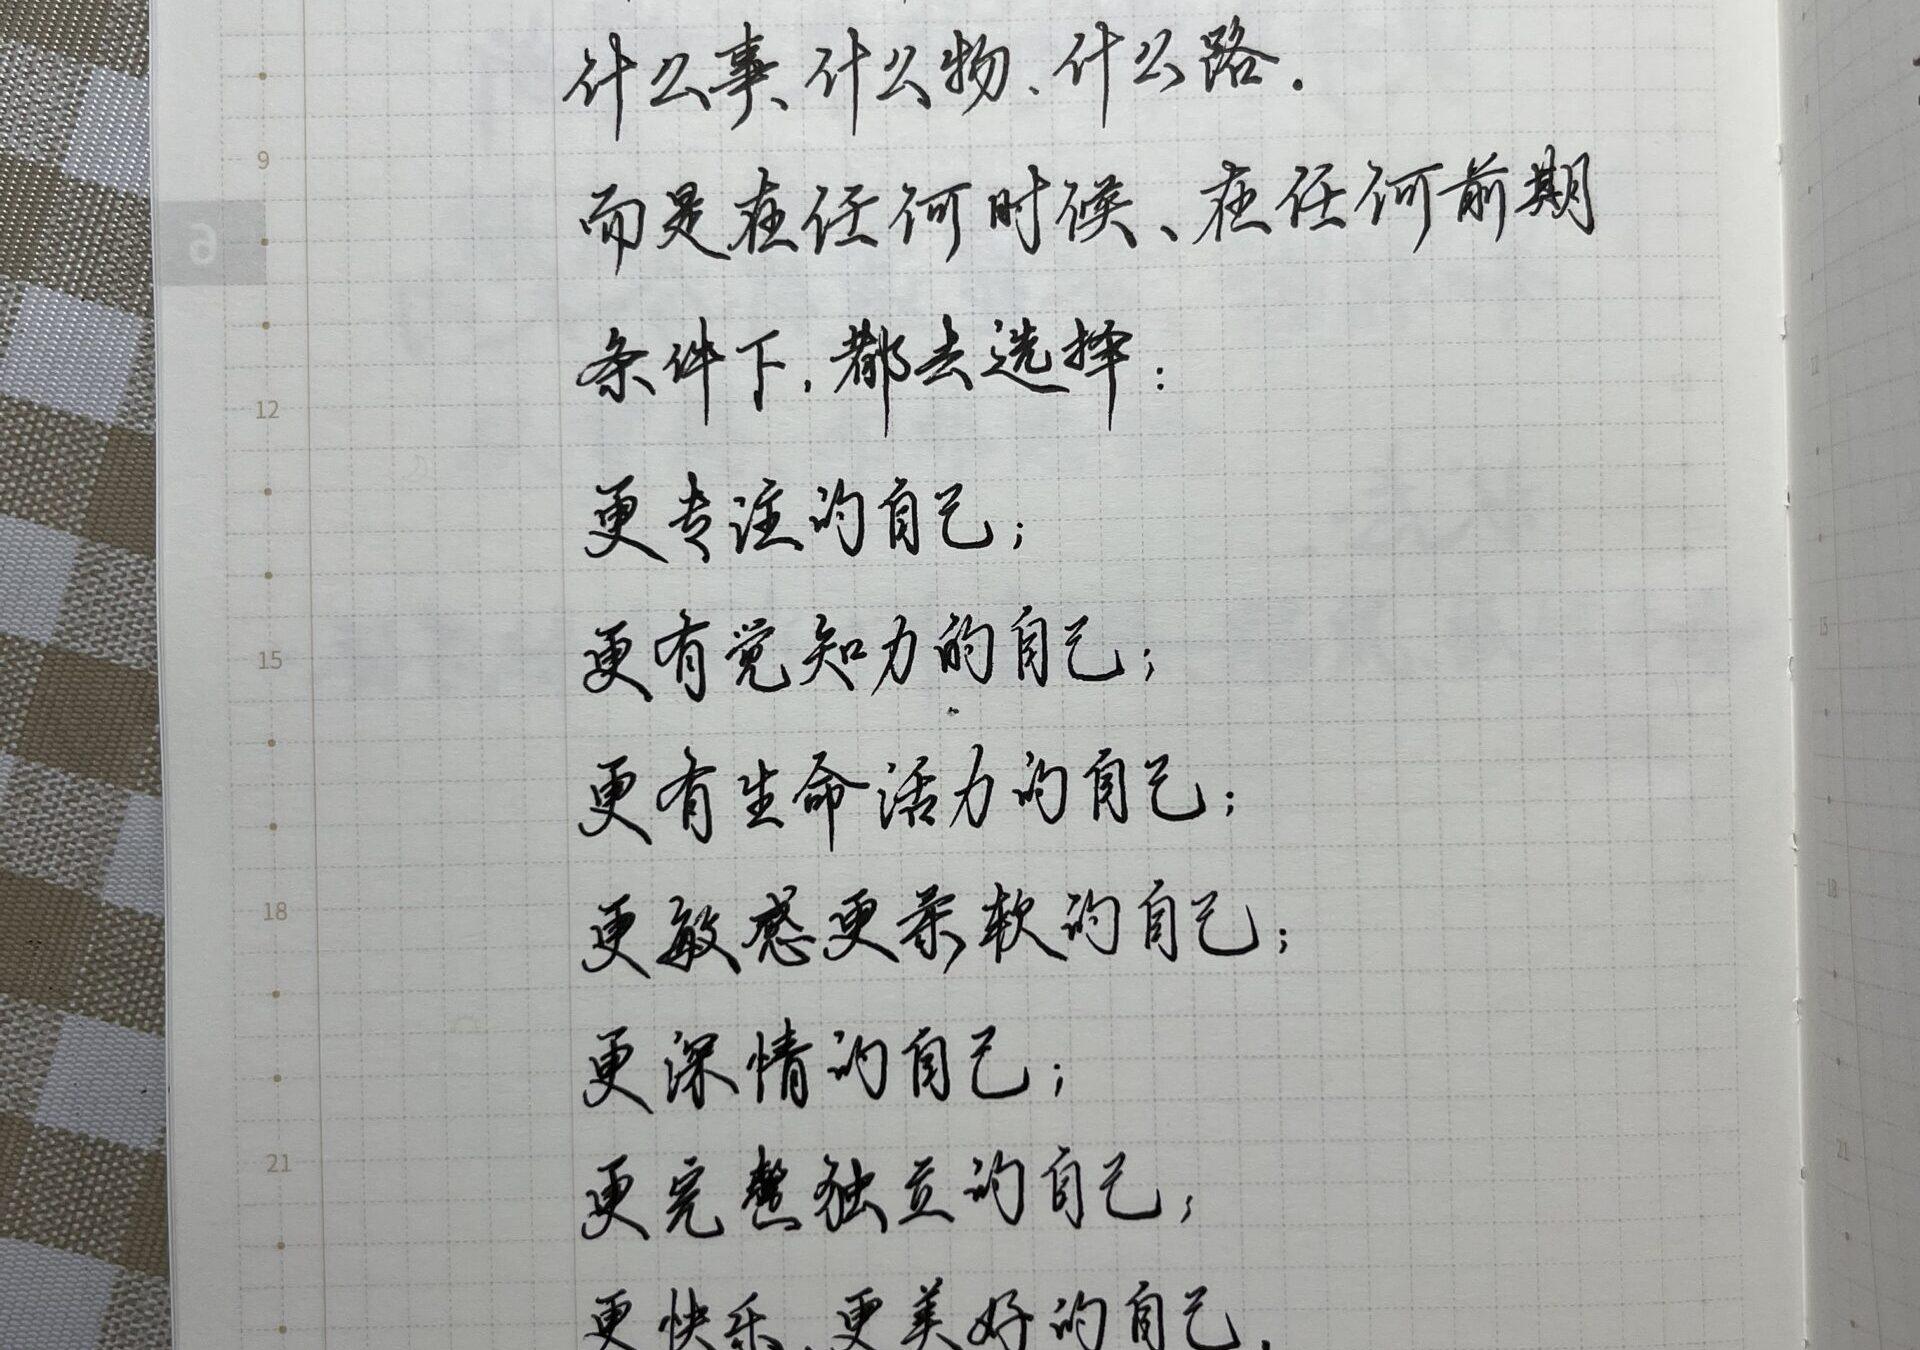 什么事、什么物、什么路.
而是在任何时候、在任何前期
条件下,都去选择:
更专注的自己;
更有觉知力的自己;
更有生命活力的自己;
更敏感更柔软的自己;
更深情的自己;
更完整独立的自己;
更快乐,更美好的自己.
9
6
12
15
18
21
15
18
21